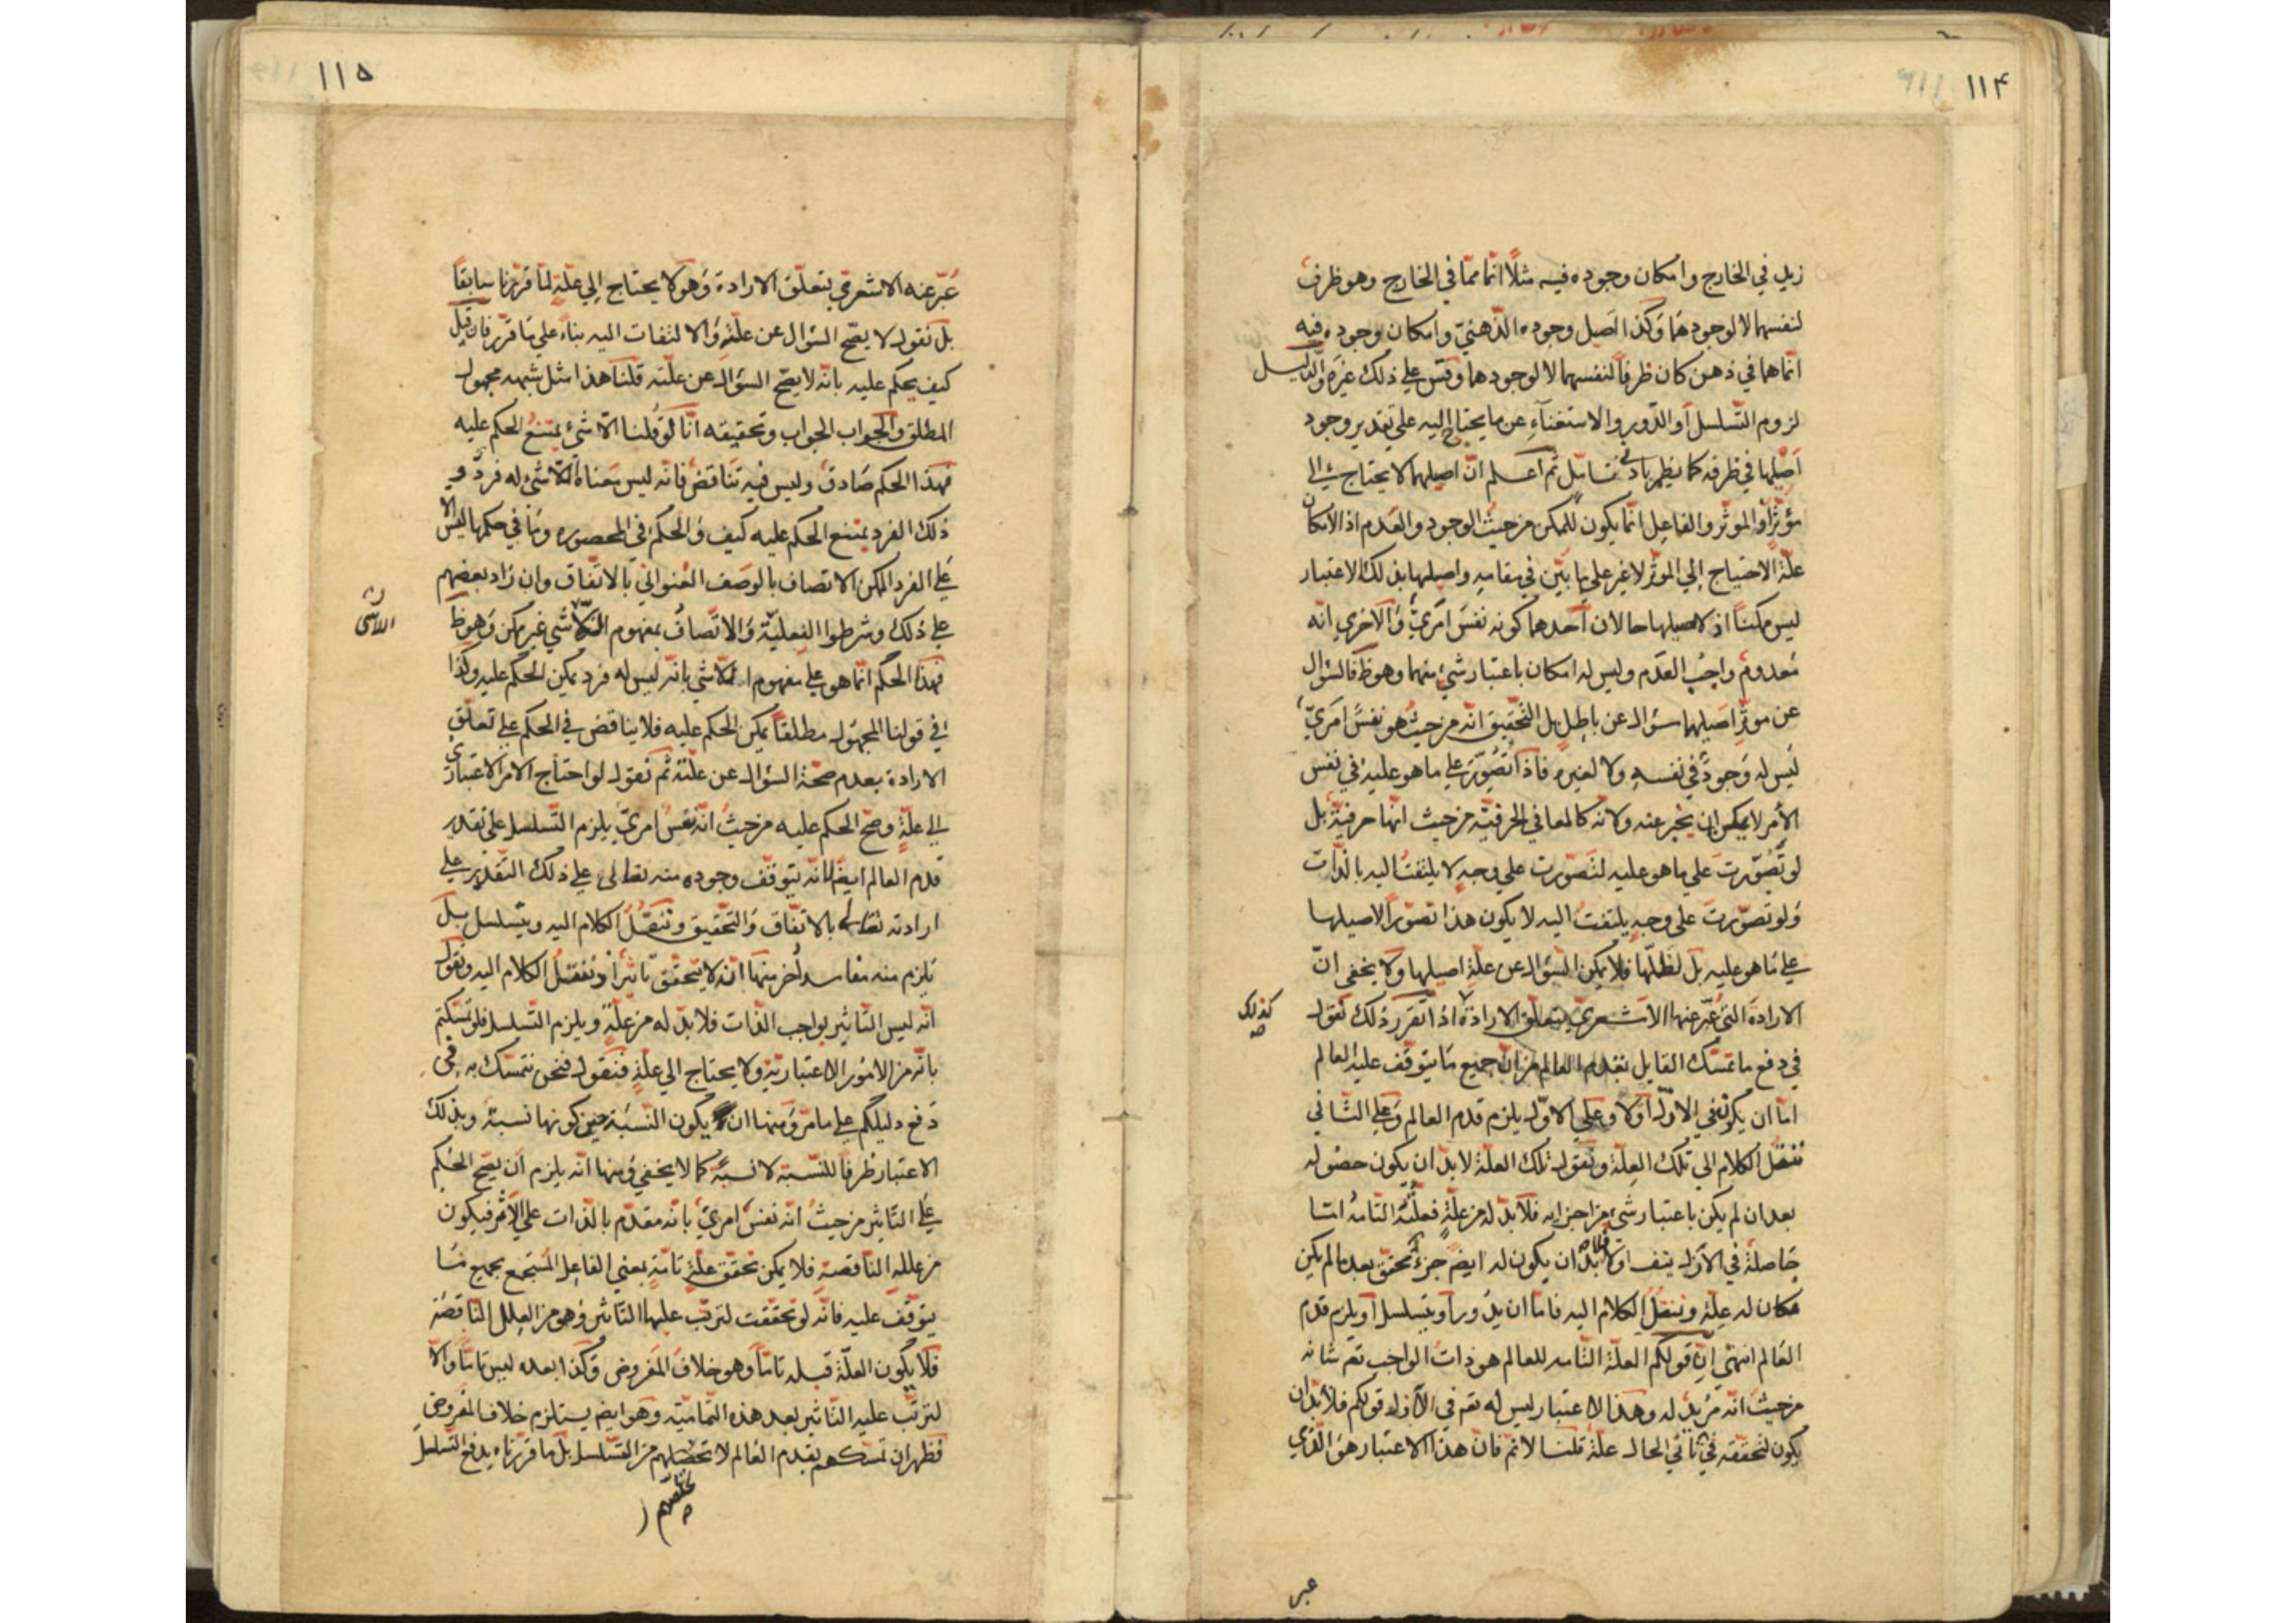 ١١۴
زيد في الخارج وامكان وجوده فيه مثلاً انّما هما في الخارج وهو ظرف
لنفسهما لا لوجودهما وكذا اصيل وجوده الذّهنيّ وامكان وجوده فيه
انّما هما في ذهن كان ظرفاً لنفسهما لا لوجودهما وقس علي ذلك غيره والدّليل
لزوم التّسلسل أو الدّور والاستغنآء عن ما يحتاج اليه علي تقدير وجود
اصيلها في ظرفه كما يظهر بادني تأمّل ثم اعلم انّ اصيلهما لا يحتاج الي
مؤثّر اذ الموثّر والفاعل انّما يكون للمكن من حيث الوجود والعدم اذ الامكان
علّة الاحتياج إلي الموثّر لا غير علي ما بيّن في مقامه واصيلهما بذلك الاعتبار
ليس ممكناً اذ لاصيلها حالان أحدهما كونه نفسَ امريّ والاخري انّه
معدوم واجب العدم وليس له امكان باعتبار شيء منهما وهو ظ فالسّؤال
عن موثّر اصيلهما سؤال عن باطل بل التّحقيق انّه من حيث هو نفس امريّ
ليس له وجود في نفسه ولا لغيره فاذا تُصوّر علي ما هو عليه في نفس
الأمر لا يمكن ان يخبر عنه ولا به كالمعاني الحرفيّة من حيث انّها حرفيّة بل
لو تُصوّرت علي ما هو عليه لتصوّرت علي وجه لا يلتفت اليه بالذّات
ولو تصوّرت علي وجه يلتفت اليه لا يكون هذا تصوّراً لاصيلها
علي ما هو عليه بل لظلّها فلا يمكن السّؤال عن علّة اصيلها ولا يخفي انّ
الارادة الّتي عبّر عنها الأشعريّ بتعلّق الارادة اذا تقرّر ذلك نقول
كذلك
في دفع ما تمسّك القايل بقدم العالم من ان جميع ما يتوقّف عليه العالم
امّا ان يكون في الاوّل أولا وعلي الاوّل يلزم قدم العالم وعلي الثّاني
ننقل الكلام الي تلك العلّة ونقول تلك العلّة لا بدّ ان يكون حصوله
بعد ان لم يكن باعتبار شيء من اجزايه فلا بدّ له من علّة فعلّته التّامّة امّا
حاصلة في الازل ينف اولا فلا بدّ ان يكون له ايض جزء تحقّق بعد ما لم يكن
فكان له علّة وننقل الكلام اليه فامّا ان يدور أو يتسلسل أو يلزم قدم
العالم انتهي انّ قولكم العلّة التّامه للعالم هو ذات الواجب تع شانه
من حيث انّه مُريدٌ له وهذا الاعتبار ليس له تع في الازل قولكم فلا بدّ ان
يكون لتحقّقه في ثاني الحال علّة قلنا لا تم فانّ هذا الاعتبار هو الّذي
عبر
١١۵
عبّر عنه الاشعري بتعلّق الارادة وهو لا يحتاج إلي علّة لما قرّرنا سابقاً
بل نقول لا يصحّ السّؤال عن علّته والالتفات اليه بناءً علي ما قرّر فان قيل
كيف يحكم عليه بانّه لا يصحّ السؤال عن علّته قلنا هذا مثل شبهه مجهول
المطلق والجواب الجواب وتحقيقه انّا لو قلنا اللاشيء يمتنع الحكم عليه
فهذا الحكم صادق وليس فيه تناقض فانّه ليس معناه انّ اللاشيء له فرد و
ذلك الفرد يمتنع الحكم عليه كيف والحكم في المحصوره وما في حكمها ليس الا
علي الفرد الممكن الاتصاف بالوصف العنوانيّ بالاتّفاق وان زاد بعضهم
علي ذلك وشرطوا الفعليّة والاتّصاف بمفهوم اللاشي غير ممكن وهو ظ
اللاشي
فهذا الحكم انّما هو علي مفهوم اللاشي بانّه ليس له فرد يمكن الحكم عليه وكذا
في قولنا المجهول مطلقاً يمكن الحكم عليه فلا يناقض في الحكم علي تعلّق
الارادة بعدم صحّة السّؤال عن علّته ثم نقول لو احتاج الامر الاعتباري
الي علّة وصحّ الحكم عليه من حيث انّه نفس امريّ يلزم التّسلسل علي تقدير
قدم العالم ايضً لانّه يتوقّف وجوده منه تعالي علي ذلك التّقدير علي
ارادته تعالي بالاتّفاق والتّحقيق وننقل الكلام اليه ويتسلسل بل
يلزم منه مفاسد أُخر منها انّه لا يتحقّق تأثير اذ ننقل الكلام اليه ونقول
انّه ليس التّاثير بواجب الذّات فلا بدّ له من علّة ويلزم التّسلسل فلو تمسّكتم
بانّه من الامور الاعتباريّة ولا يحتاج الي علّة فنقول فنحن نتمسّك به في
دفع دليلكم علي ما مرّ ومنها ان يكون النّسبة حين كونها نسبة وبذلك
الاعتبار ظرفاً للنّسبة لا نسبة كما لا يخفي ومنها انّه يلزم أن يصحّ الحكم
علي التّاثير من حيث انّه نفس امريّ بانّه مقدّم بالذّات علي الأثر فيكون
من علله النّاقصة فلا يمكن تحقّق علّة تامّة بمعني الفاعل المستجمع بجميع ما
يتوقّف عليه فانّه لو تحقّقت لترتّب عليها التّاثير وهو من العلل النّاقصة
فلا يكون العلّة قبله تامّاً وهو خلاف المفروض وكذا بعده ليس تامّاً والا
لترتّب عليه التّاثير بعد هذه التّماميّة وهو ايض يستلزم خلاف المفروض
فظهر ان تمسّكهم بقدم العالم لا يخلّصهم من التّسلسل بل ما قرّرناه يدفع التّسلسل